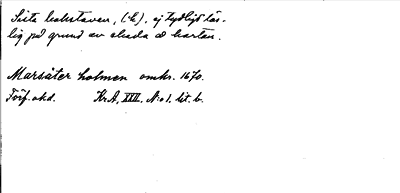 Sista bokstaven, (E), ej tydligt läs-
lig på grund av skada å kartan.
Marsäter holmen omkr. 1670.
Förf. okd. Kr.A, XXII, No 1, lit. b.